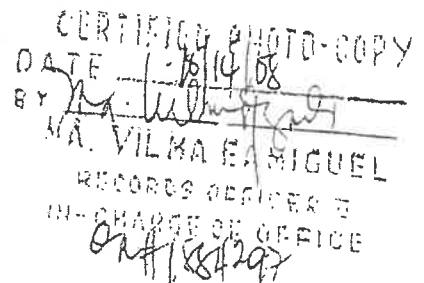 CERTIFIED PHOTO-COPY
DATE 8/14/08
BY
MA. VILMA E. MIGUEL
RECORDS OFFICER II
IN-CHARGE OF OFFICE
OR# 1884297